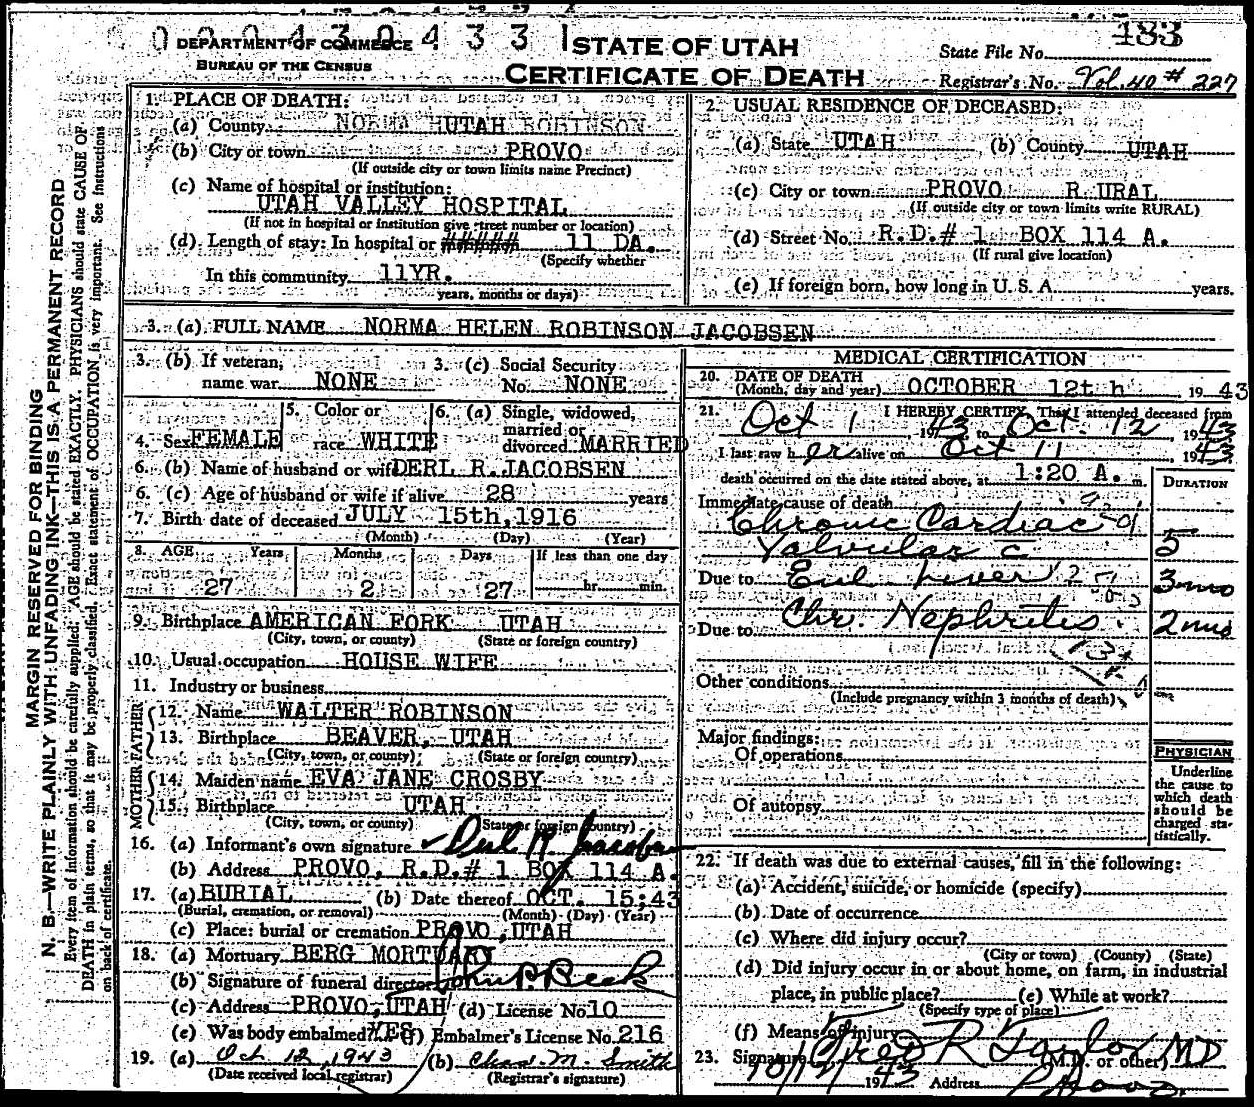 DEPARTMENT OF COMMERCE
BUREAU OF THE CENSUS
STATE OF UTAH
CERTIFICATE OF DEATH
State File No. 183
Registrar's No. Vol. 40 # 227
MARGIN RESERVED FOR BINDING
N. B.—WRITE PLAINLY WITH UNFADING INK—THIS IS A PERMANENT RECORD
Every item of information should be carefully supplied. AGE should be stated EXACTLY. PHYSICIANS should state CAUSE OF
DEATH in plain terms, so that it may be properly classified. Exact statement of OCCUPATION is very important. See Instructions
on back of certificate.
1. PLACE OF DEATH:
(a) County UTAH
(b) City or town PROVO
(If outside city or town limits name Precinct)
(c) Name of hospital or institution:
UTAH VALLEY HOSPITAL
(If not in hospital or institution give street number or location)
(d) Length of stay: In hospital or ###### 11 DA.
(Specify whether
In this community 11YR.
years, months or days)
2. USUAL RESIDENCE OF DECEASED:
(a) State UTAH (b) County UTAH
(c) City or town PROVO R.URAL
(If outside city or town limits write RURAL)
(d) Street No. R.D.# 1 BOX 114 A.
(If rural give location)
(e) If foreign born, how long in U. S. A. years.
3. (a) FULL NAME NORMA HELEN ROBINSON JACOBSEN
3. (b) If veteran, name war NONE
3. (c) Social Security No. NONE
4. Sex FEMALE
5. Color or race WHITE
6. (a) Single, widowed, married or divorced MARRIED
6. (b) Name of husband or wife DERL R.JACOBSEN
6. (c) Age of husband or wife if alive 28 years
7. Birth date of deceased JULY 15th,1916
(Month) (Day) (Year)
8. AGE Years Months Days If less than one day
27 2 27 hr. min.
9. Birthplace AMERICAN FORK UTAH
(City, town, or county) (State or foreign country)
10. Usual occupation HOUSE WIFE
11. Industry or business
FATHER
12. Name WALTER ROBINSON
13. Birthplace BEAVER, UTAH
(City, town, or county) (State or foreign country)
MOTHER
14. Maiden name EVA JANE CROSBY
15. Birthplace UTAH
(City, town, or county) (State or foreign country)
16. (a) Informant's own signature Derl R Jacobsen
(b) Address PROVO, R.D.# 1 BOX 114 A.
17. (a) BURIAL (b) Date thereof OCT. 15;43
(Burial, cremation, or removal) (Month) (Day) (Year)
(c) Place: burial or cremation PROVO,UTAH
18. (a) Mortuary BERG MORTUARY
(b) Signature of funeral director
(c) Address PROVO,UTAH (d) License No 10
(e) Was body embalmed? YES (f) Embalmer's License No. 216
19. (a) Oct 12, 1943 (b) Chas. M. Smith
(Date received local registrar) (Registrar's signature)
MEDICAL CERTIFICATION
20. DATE OF DEATH
(Month, day and year) OCTOBER 12th 1943
21. I HEREBY CERTIFY, That I attended deceased from
Oct 1 1943 to Oct. 12, 1943
I last saw her alive on Oct 11, 1943
death occurred on the date stated above, at 1:20 A. m.
DURATION
Immediate cause of death
Chronic Cardiac
Valvular c 5
Due to Enl liver 3 mo
Due to Chr. Nephritis 2 mo
Other conditions
(Include pregnancy within 3 months of death)
Major findings:
Of operations
Of autopsy
PHYSICIAN
Underline
the cause to
which death
should be
charged sta-
tistically.
22. If death was due to external causes, fill in the following:
(a) Accident, suicide, or homicide (specify)
(b) Date of occurrence
(c) Where did injury occur?
(City or town) (County) (State)
(d) Did injury occur in or about home, on farm, in industrial
place, in public place? (e) While at work?
(Specify type of place)
(f) Means of injury
23. Signature Fred R Taylor MD
(M.D. or other)
10/12/ 1943 Address Provo.